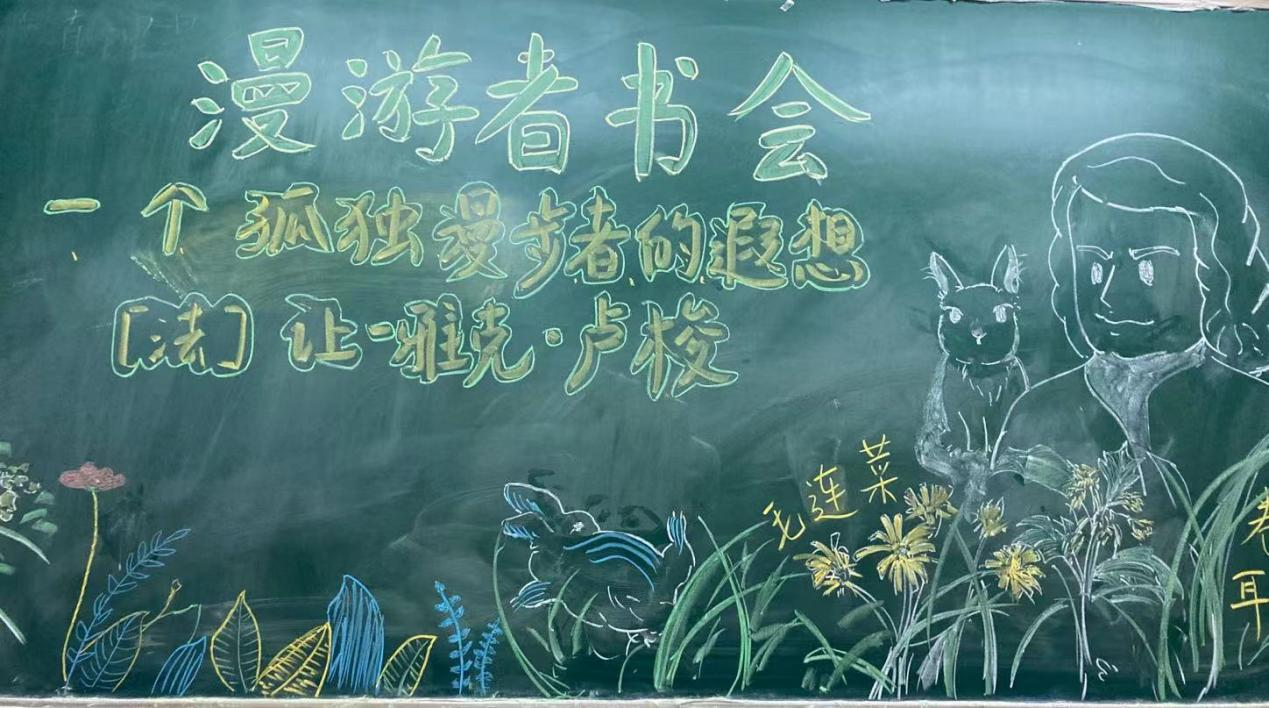 漫游者书会
一个孤独漫步者的遐想
[法] 让-雅克·卢梭
毛连菜
卷耳